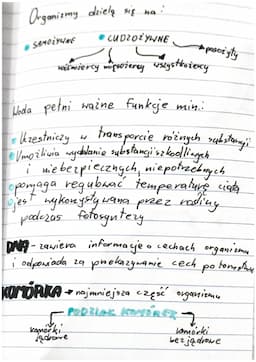 Organizmy dzielą się na:
• SAMOŻYWNE • CUDZOŻYWNE → pasożyty
roślinożercy mięsożercy wszystkożercy
Woda pełni ważne funkcje min.:
• Uczestniczy w transporcie różnych substancji
• Umożliwia wydalanie substancji szkodliwych
i niebezpiecznych, niepotrzebnych
• pomaga regulować temperaturę ciała
• jest wykorzystywana przez rośliny
podczas fotosyntezy
DNA - zawiera informacje o cechach organizmu
i odpowiada za przekazywanie cech potomstwu
KOMÓRKA → najmniejsza część organizmu
PODZIAŁ KOMÓREK
komórki komórki
jądrowe bezjądrowe